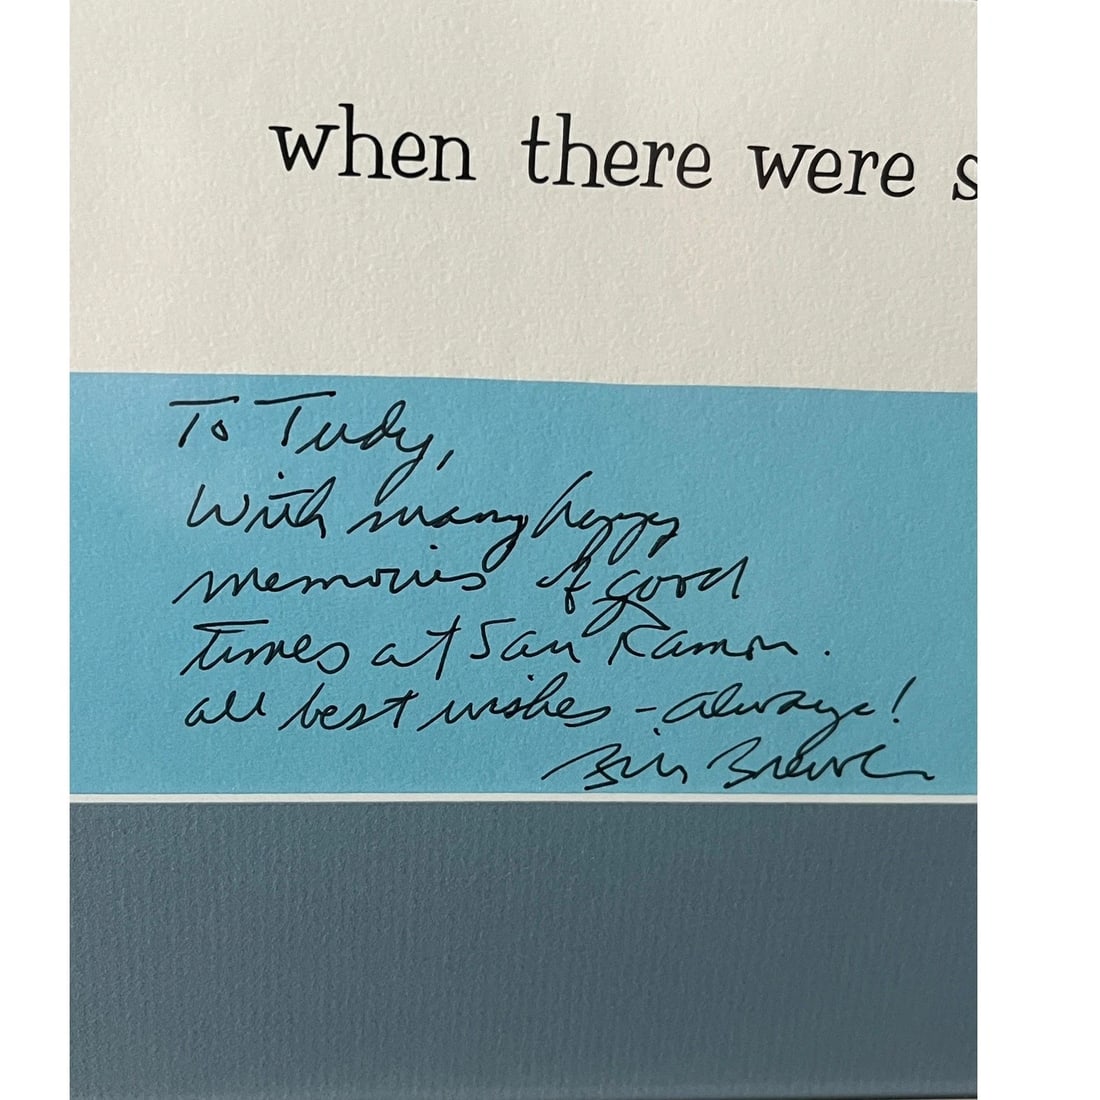 when there were s
To Tudy,
With many happy
memories of good
times at San Ramon.
all best wishes - always!
Bill